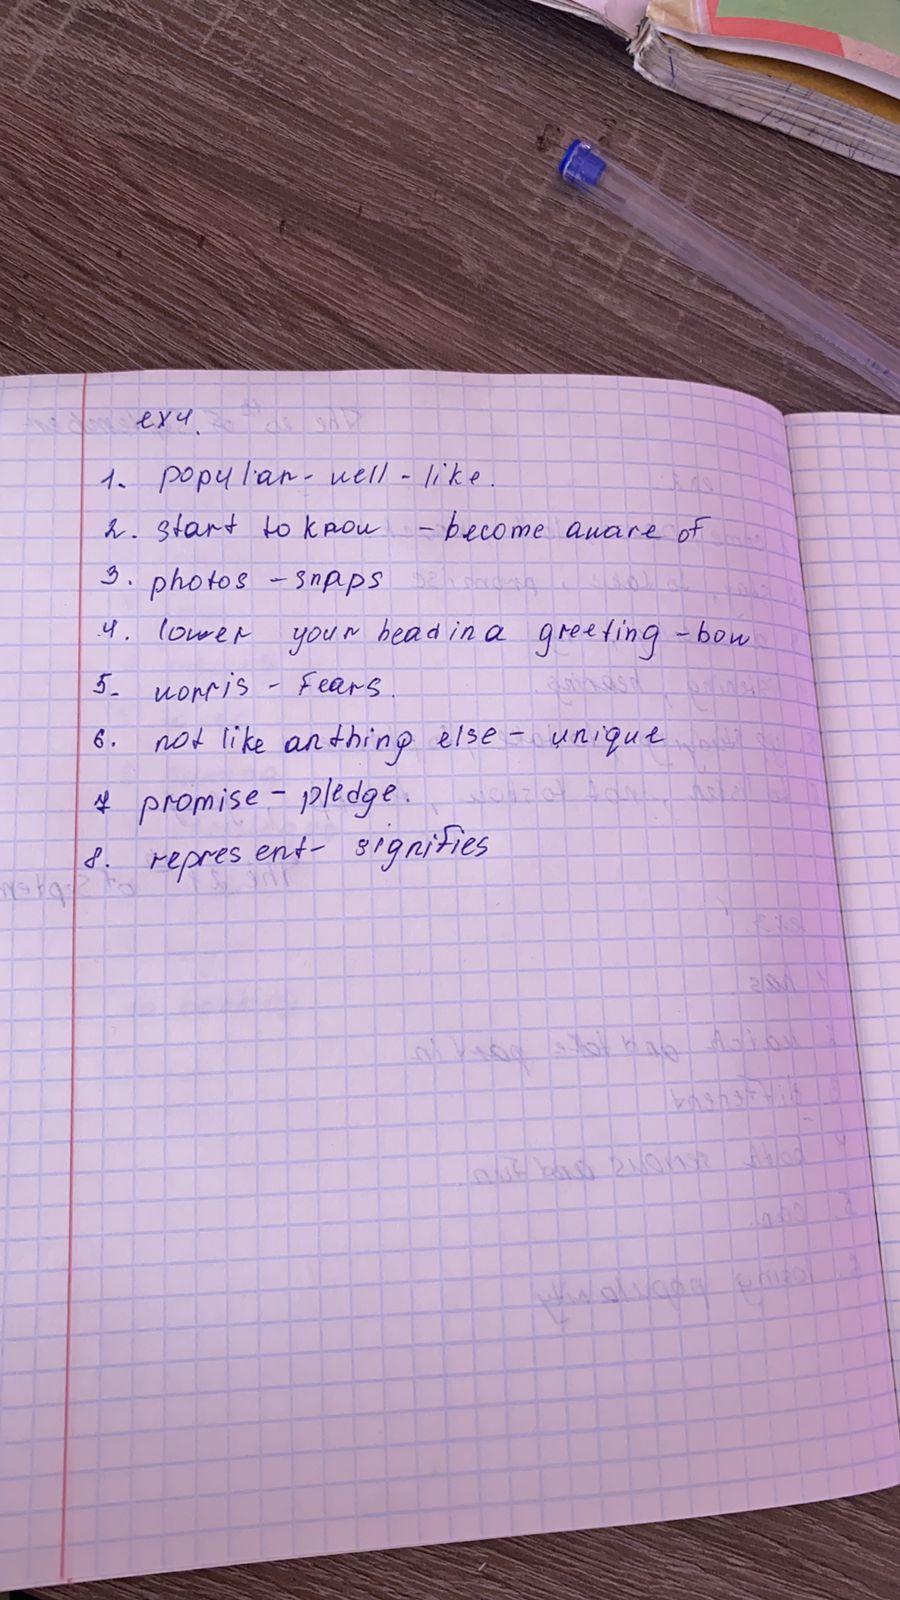 ex4.
1. popular - well - like.
2. start to know - become aware of
3. photos - snaps
4. lower your head in a greeting - bow
5. worris - fears.
6. not like anthing else - unique
7 promise - pledge.
8. represent - signifies